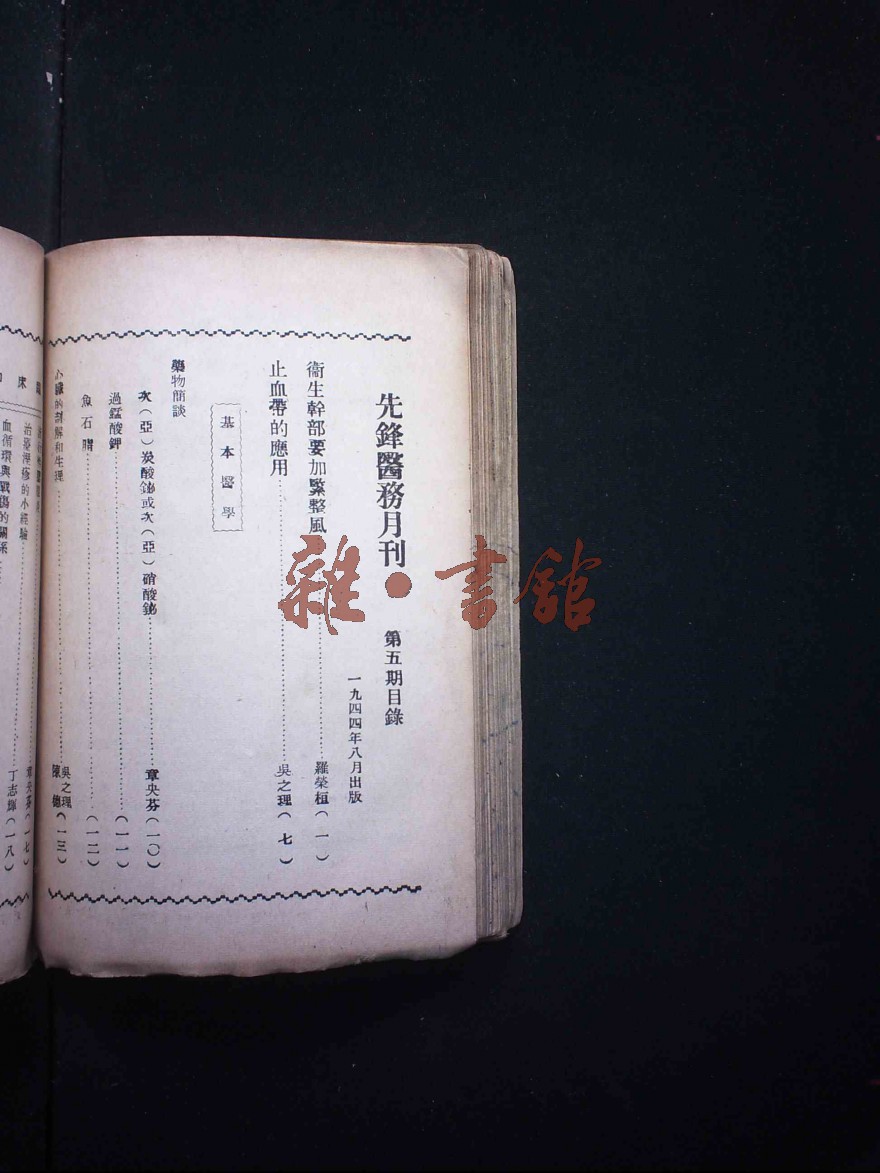 先鋒醫務月刊 第五期目錄
一九四四年八月出版
衞生幹部要加緊整風……羅榮桓(一)
止血帶的應用……吳之理(七)
基本醫學
藥物簡談
次(亞)炭酸鉍或次(亞)硝酸鉍……章央芬(一〇)
過錳酸鉀……(一一)
魚石脂……(一二)
心臟的剖解和生理……吳之理 陳德(一三)
床
治療溼疹的小經驗……章央芬(一七)
血循環與戰傷的關係……丁志輝(一八)
雜·書館